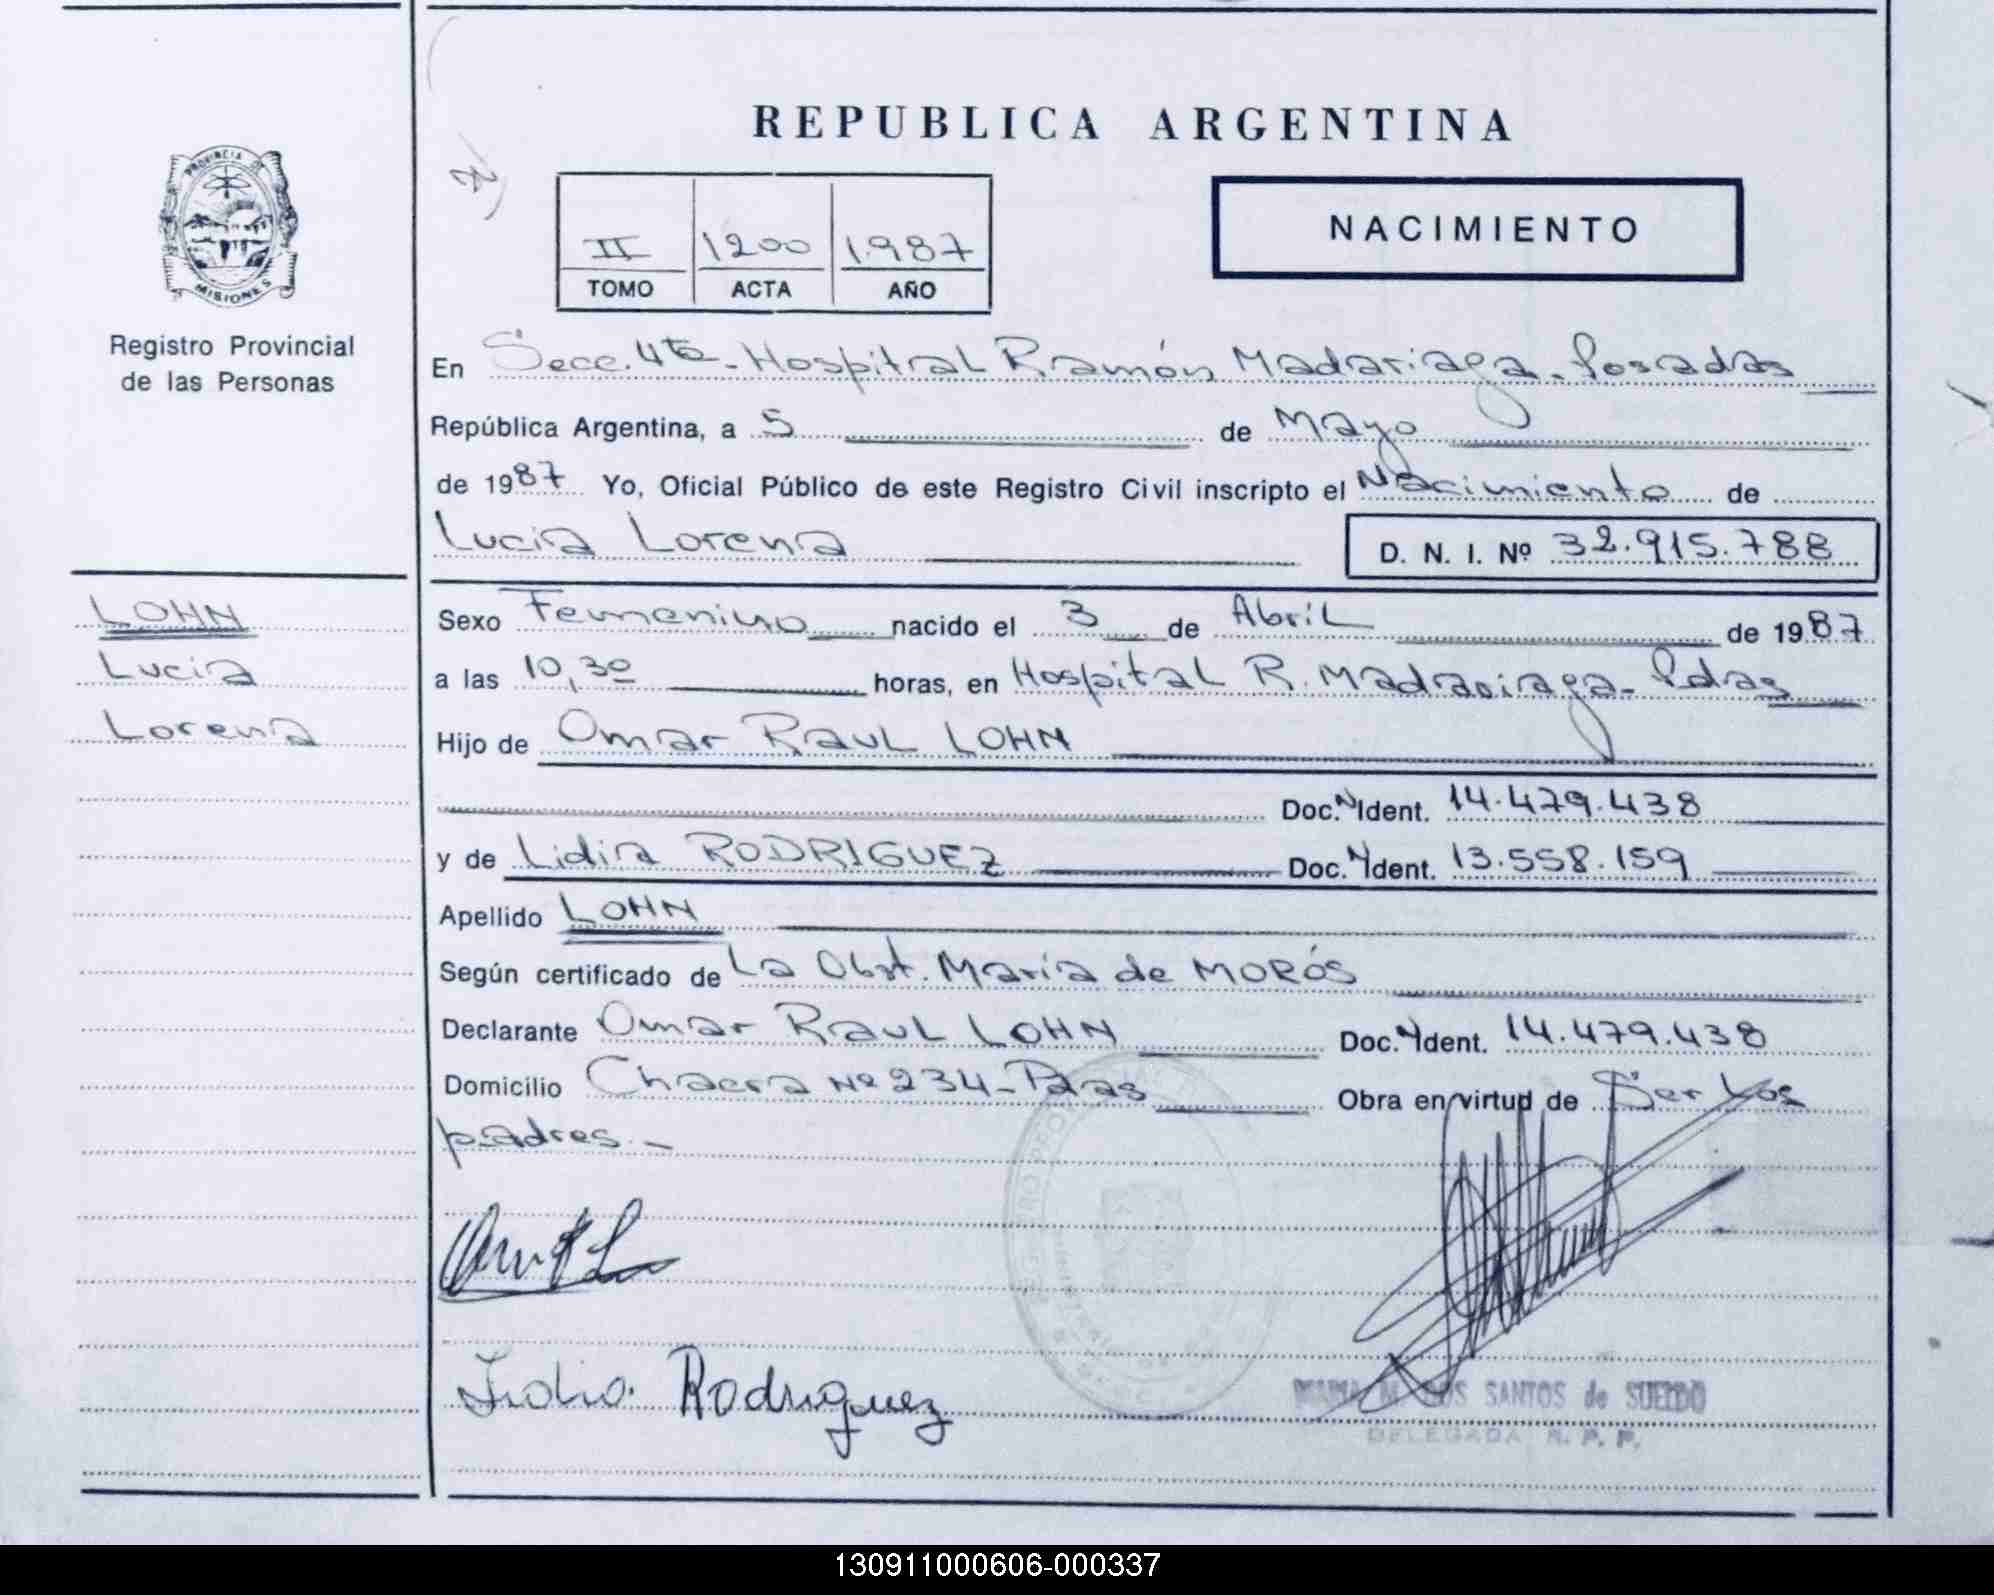 REPUBLICA ARGENTINA
PROVINCIA DE
MISIONES
Registro Provincial
de las Personas
II 1200 1.987
TOMO ACTA AÑO
NACIMIENTO
En Secc. 4ta - Hospital Ramón Madariaga - Posadas
República Argentina, a 5 de Mayo
de 1987 Yo, Oficial Público de este Registro Civil inscripto el Nacimiento de
Lucia Lorena
D. N. I. Nº 32.915.788
LOHN
Lucia
Lorena
Sexo Femenino nacido el 3 de Abril de 1987
a las 10,30 horas, en Hospital R. Madariaga - Pdas
Hijo de Omar Raul LOHN
Doc. Ident. 14.479.438
y de Lidia RODRIGUEZ Doc. Ident. 13.558.159
Apellido LOHN
Según certificado de La Obst. Maria de MORÓS
Declarante Omar Raul LOHN Doc. Ident. 14.479.438
Domicilio Chacra Nº 234 - Pdas Obra en virtud de Ser Los
padres. -
Lidia Rodriguez
MARIA M. DOS SANTOS de SUELDO
DELEGADA R. P. P.
130911000606-000337